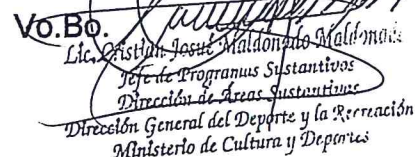 Vo.Bo.
Lic. Cristian Josué Maldonado Maldonado
Jefe de Programas Sustantivos
Dirección de Áreas Sustantivas
Dirección General del Deporte y la Recreación
Ministerio de Cultura y Deportes